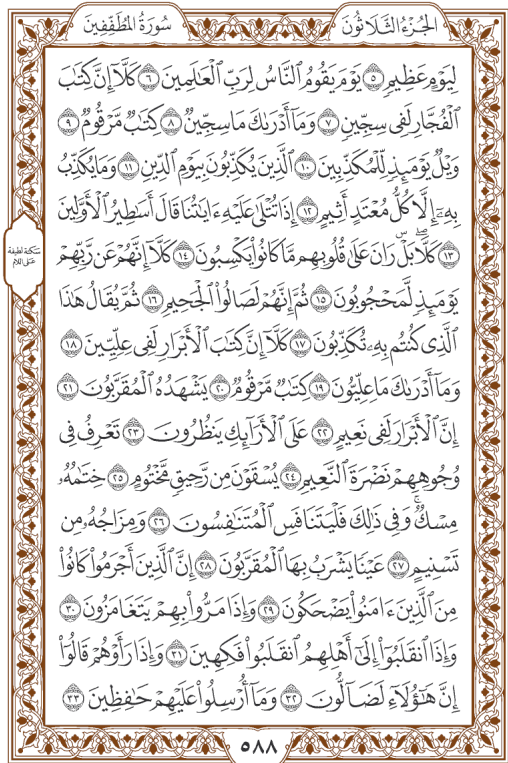 سُورَةُ المُطَفِّفِينَ
الجُزْءُ الثَّلَاثُونَ
لِيَوْمٍ عَظِيمٍ ٥ يَوْمَ يَقُومُ ٱلنَّاسُ لِرَبِّ ٱلْعَٰلَمِينَ ٦ كَلَّآ إِنَّ كِتَٰبَ
ٱلْفُجَّارِ لَفِى سِجِّينٍ ٧ وَمَآ أَدْرَىٰكَ مَا سِجِّينٌ ٨ كِتَٰبٌ مَّرْقُومٌ ٩
وَيْلٌ يَوْمَئِذٍ لِّلْمُكَذِّبِينَ ١٠ ٱلَّذِينَ يُكَذِّبُونَ بِيَوْمِ ٱلدِّينِ ١١ وَمَا يُكَذِّبُ
بِهِۦٓ إِلَّا كُلُّ مُعْتَدٍ أَثِيمٍ ١٢ إِذَا تُتْلَىٰ عَلَيْهِ ءَايَٰتُنَا قَالَ أَسَٰطِيرُ ٱلْأَوَّلِينَ
١٣ كَلَّا ۖ بَلْ ۜ رَانَ عَلَىٰ قُلُوبِهِم مَّا كَانُوا۟ يَكْسِبُونَ ١٤ كَلَّآ إِنَّهُمْ عَن رَّبِّهِمْ
يَوْمَئِذٍ لَّمَحْجُوبُونَ ١٥ ثُمَّ إِنَّهُمْ لَصَالُوا۟ ٱلْجَحِيمِ ١٦ ثُمَّ يُقَالُ هَٰذَا
ٱلَّذِى كُنتُم بِهِۦ تُكَذِّبُونَ ١٧ كَلَّآ إِنَّ كِتَٰبَ ٱلْأَبْرَارِ لَفِى عِلِّيِّينَ ١٨
وَمَآ أَدْرَىٰكَ مَا عِلِّيُّونَ ١٩ كِتَٰبٌ مَّرْقُومٌ ٢٠ يَشْهَدُهُ ٱلْمُقَرَّبُونَ ٢١
إِنَّ ٱلْأَبْرَارَ لَفِى نَعِيمٍ ٢٢ عَلَى ٱلْأَرَآئِكِ يَنظُرُونَ ٢٣ تَعْرِفُ فِى
وُجُوهِهِمْ نَضْرَةَ ٱلنَّعِيمِ ٢٤ يُسْقَوْنَ مِن رَّحِيقٍ مَّخْتُومٍ ٢٥ خِتَٰمُهُۥ
مِسْكٌ ۚ وَفِى ذَٰلِكَ فَلْيَتَنَافَسِ ٱلْمُتَنَٰفِسُونَ ٢٦ وَمِزَاجُهُۥ مِن
تَسْنِيمٍ ٢٧ عَيْنًا يَشْرَبُ بِهَا ٱلْمُقَرَّبُونَ ٢٨ إِنَّ ٱلَّذِينَ أَجْرَمُوا۟ كَانُوا۟
مِنَ ٱلَّذِينَ ءَامَنُوا۟ يَضْحَكُونَ ٢٩ وَإِذَا مَرُّوا۟ بِهِمْ يَتَغَامَزُونَ ٣٠
وَإِذَا ٱنقَلَبُوٓا۟ إِلَىٰٓ أَهْلِهِمُ ٱنقَلَبُوا۟ فَكِهِينَ ٣١ وَإِذَا رَأَوْهُمْ قَالُوٓا۟
إِنَّ هَٰٓؤُلَآءِ لَضَآلُّونَ ٣٢ وَمَآ أُرْسِلُوا۟ عَلَيْهِمْ حَٰفِظِينَ ٣٣
سكتة لطيفة
على اللام
٥٨٨